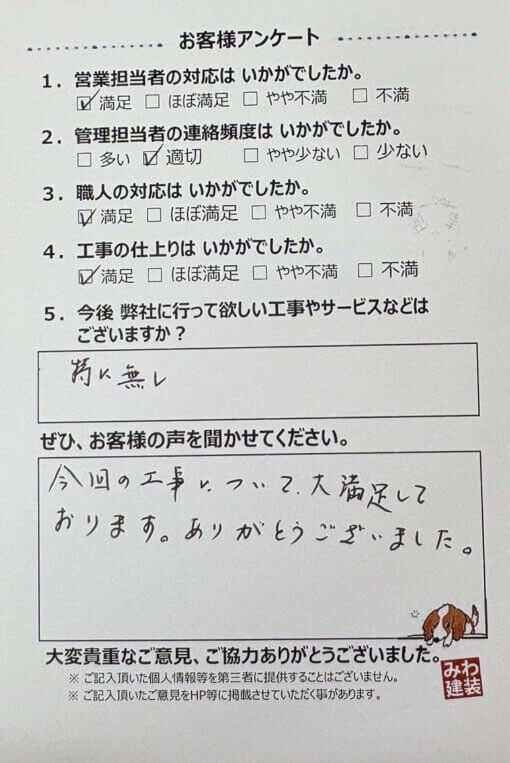 お客様アンケート
1. 営業担当者の対応は いかがでしたか。
☑ 満足 □ ほぼ満足 □ やや不満 □ 不満
2. 管理担当者の連絡頻度は いかがでしたか。
□ 多い ☑ 適切 □ やや少ない □ 少ない
3. 職人の対応は いかがでしたか。
☑ 満足 □ ほぼ満足 □ やや不満 □ 不満
4. 工事の仕上りは いかがでしたか。
☑ 満足 □ ほぼ満足 □ やや不満 □ 不満
5. 今後 弊社に行って欲しい工事やサービスなどは
ございますか？
特に無し
ぜひ、お客様の声を聞かせてください。
今回の工事について、大満足して
おります。ありがとうございました。
大変貴重なご意見、ご協力ありがとうございました。
※ ご記入頂いた個人情報等を第三者に提供することはございません。
※ ご記入頂いたご意見をHP等に掲載させていただく事があります。
みわ
建装